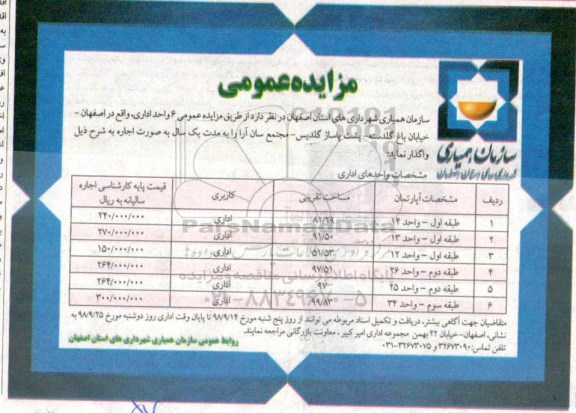 مزایده عمومی
سازمان همیاری شهرداری های استان اصفهان
سازمان همیاری شهرداری های استان اصفهان در نظر دارد از طریق مزایده عمومی ۶ واحد اداری، واقع در اصفهان –
خیابان باغ گلدسته- پشت پاساژ گلدیس- مجتمع سان آرا را به مدت یک سال به صورت اجاره به شرح ذیل
واگذار نماید:
مشخصات واحدهای اداری
ردیف مشخصات آپارتمان مساحت تقریبی کاربری قیمت پایه کارشناسی اجاره سالیانه به ریال
۱ طبقه اول – واحد ۱۴ ۸۱/۲۹ اداری ۲۴۰/۰۰۰/۰۰۰
۲ طبقه اول – واحد ۱۳ ۹۱/۵۰ اداری ۲۷۰/۰۰۰/۰۰۰
۳ طبقه اول – واحد ۱۲ ۵۱/۵۳ اداری ۱۵۰/۰۰۰/۰۰۰
۴ طبقه دوم – واحد ۲۶ ۹۷/۵۱ اداری ۲۶۴/۰۰۰/۰۰۰
۵ طبقه دوم – واحد ۲۵ ۹۷ اداری ۲۶۴/۰۰۰/۰۰۰
۶ طبقه سوم – واحد ۳۴ ۹۹/۸۳ اداری ۳۰۰/۰۰۰/۰۰۰
متقاضیان جهت آگاهی بیشتر، دریافت و تکمیل اسناد مربوطه می توانند از روز پنج شنبه مورخ ۹۸/۹/۱۴ تا پایان وقت اداری روز دوشنبه مورخ ۹۸/۹/۲۵ به
نشانی، اصفهان- خیابان ۲۲ بهمن مجموعه اداری امیر کبیر ، معاونت بازرگانی مراجعه نمایند.
تلفن تماس: ۳۲۶۷۳۰۹۰ و ۳۲۶۷۳۰۷۵-۰۳۱
روابط عمومی سازمان همیاری شهرداری های استان اصفهان
ParsNamadData
پایگاه اطلاع رسانی مناقصه و مزایده
۰۲۱-۸۸۳۴۹۶۷۰-۵